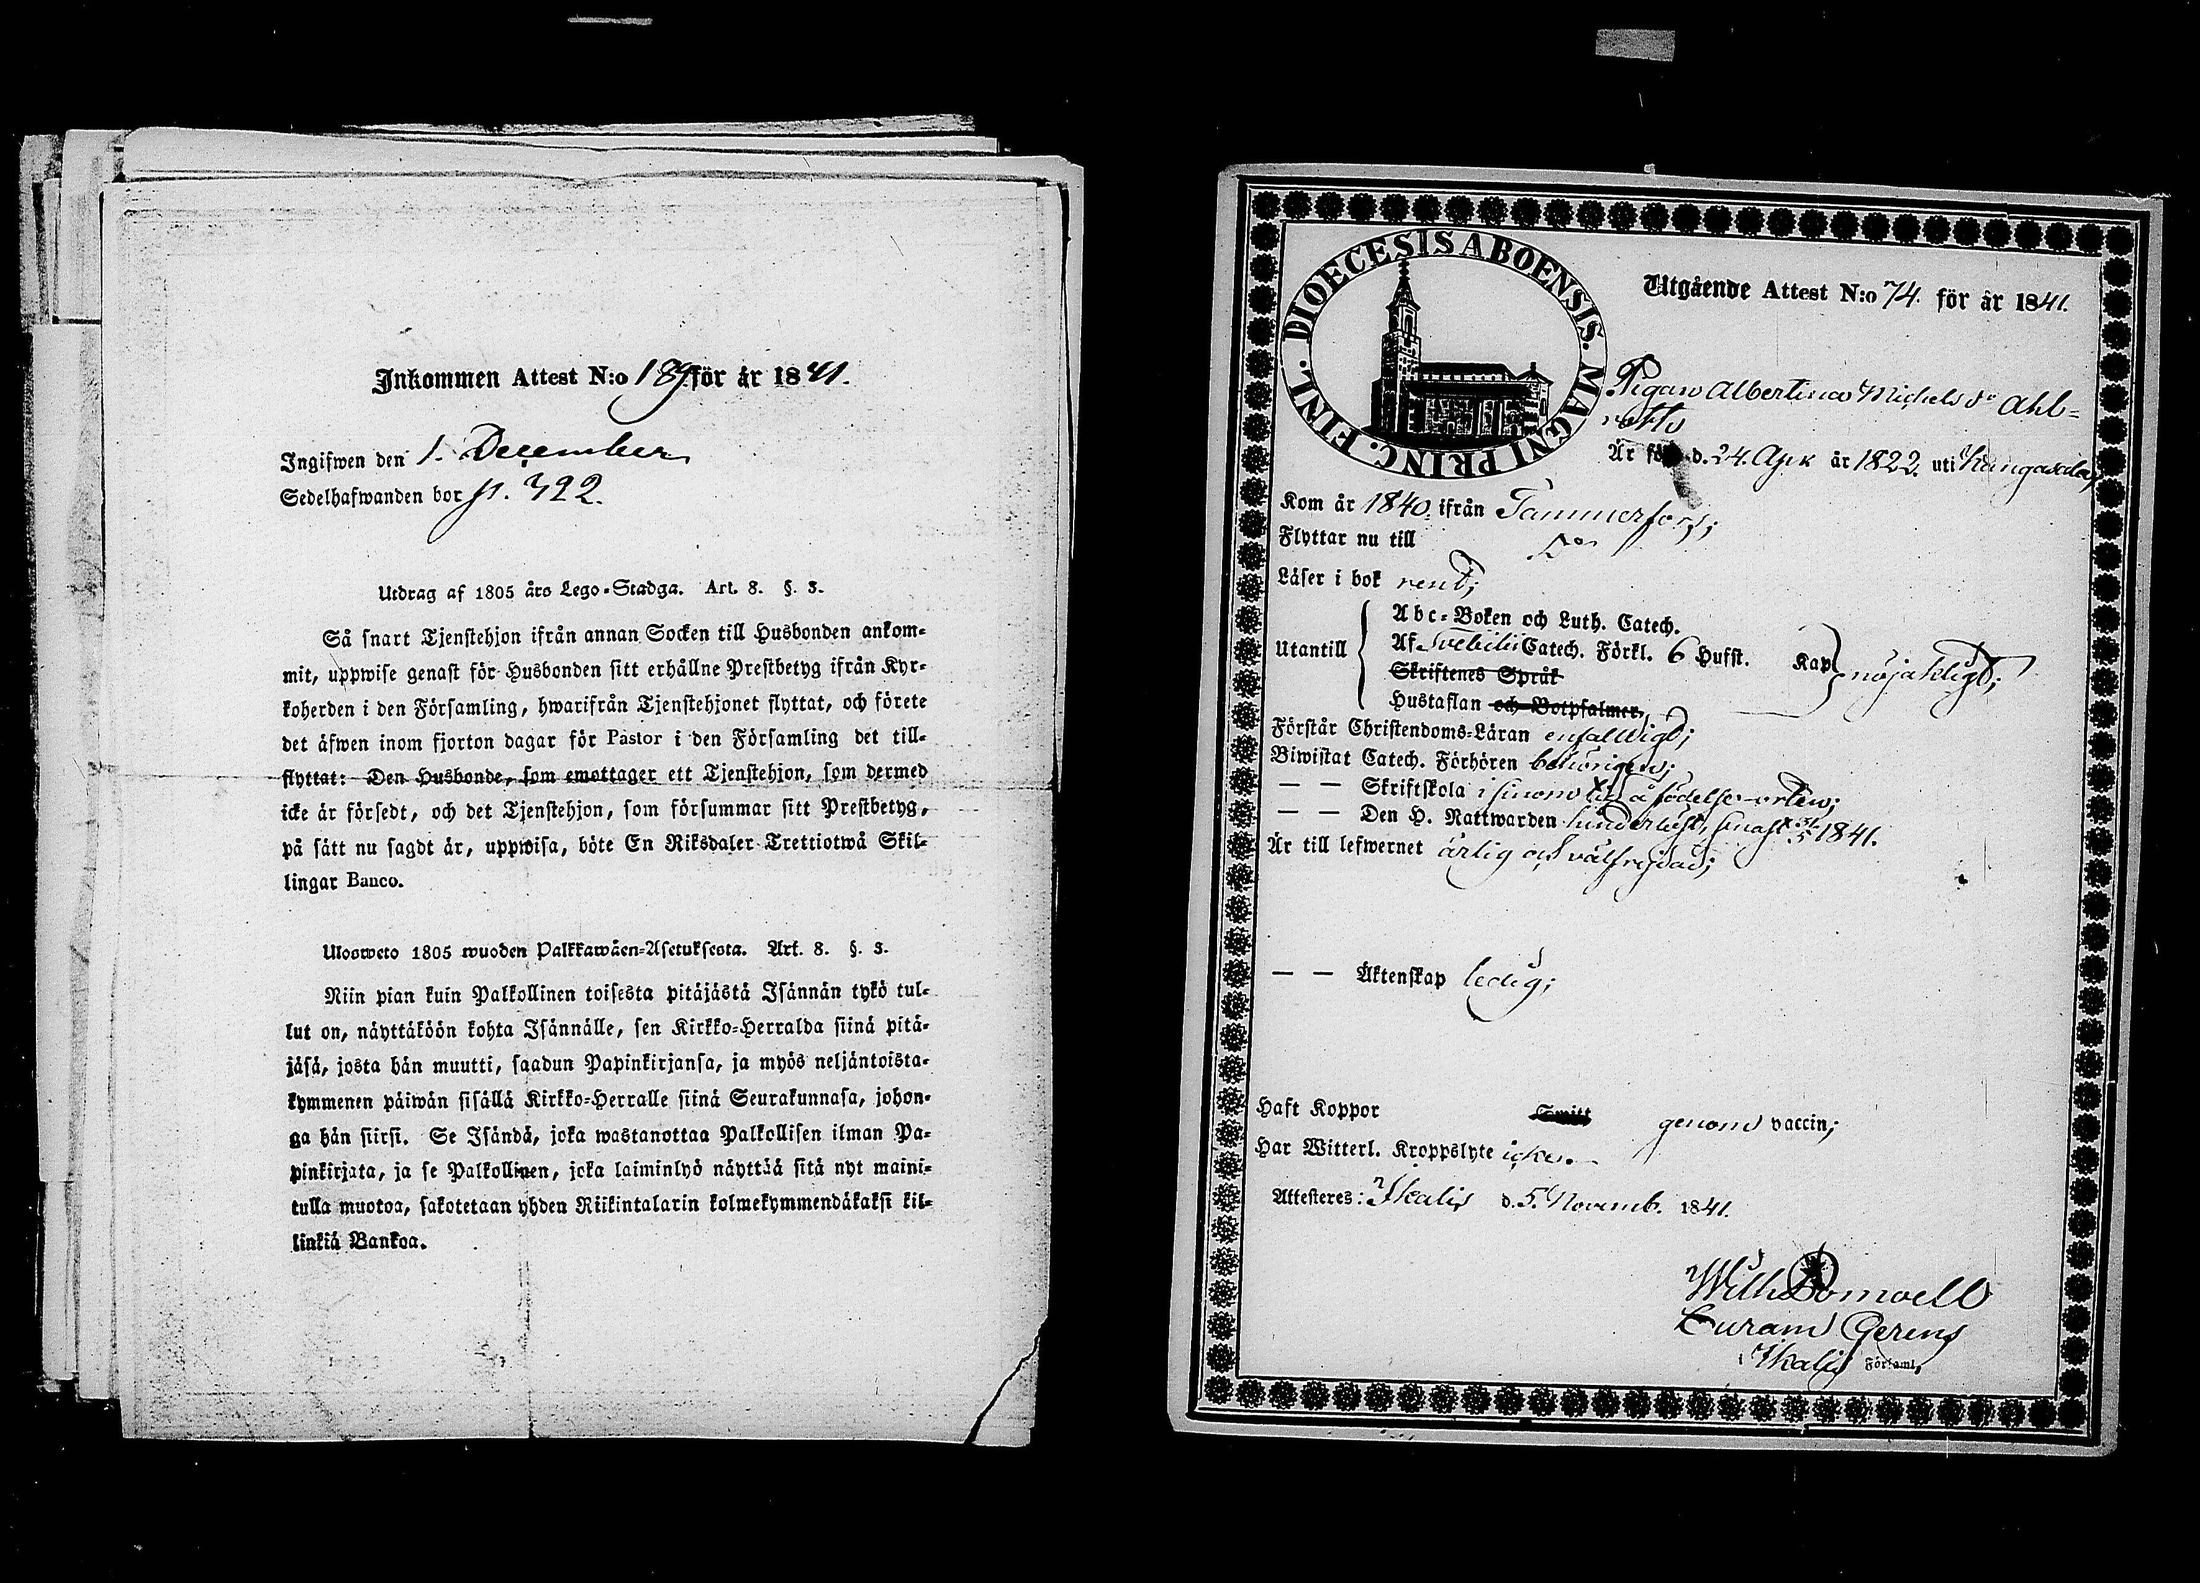 Inkommen Attest N:o 189 för år 1841.
Ingifwen den 1. December
Sedelhafwanden bor p. 322.
Utdrag af 1805 års Lego-Stadga. Art. 8. §. 3.
Så snart Tjenstehjon ifrån annan Socken till Husbonden ankom-
mit, uppwise genast för Husbonden sitt erhållne Prestbetyg ifrån Kyr-
koherden i den Församling, hwarifrån Tjenstehjonet flyttat, och förete
det äfwen inom fjorton dagar för Pastor i den Församling det till-
flyttat: Den Husbonde, som emottager ett Tjenstehjon, som dermed
icke är försedt, och det Tjenstehjon, som försummar sitt Prestbetyg,
på sätt nu sagdt är, uppwisa, böte En Riksdaler Trettiotwå Skil-
lingar Banco.
Ulosweto 1805 wuoden Palkkawäen-Asetuksesta. Art. 8. §. 3.
Niin pian kuin Palkollinen toisesta pitäjästä Isännän tykö tul-
lut on, näyttäköön kohta Isännälle, sen Kirkko-Herralda siinä pitä-
jäsä, josta hän muutti, saadun Papinkirjansa, ja myös neljäntoista-
kymmenen päiwän sisällä Kirkko-Herralle siinä Seurakunnasa, johon-
ga hän siirsi. Se Isändä, joka wastanottaa Palkollisen ilman Pa-
pinkirjata, ja se Palkollinen, joka laiminlyö näyttää sitä nyt maini-
tulla muotoa, sakotetaan yhden Riikintalarin kolmekymmendäkaksi kil-
linkiä Bankoa.
DIOECESIS ABOENSIS. MAGNI PRINC. FINL.
Utgående Attest N:o 74. för år 1841.
Pigan Albertina Michelsdr Ahl=
Är född d. 24. Apr. år 1822. uti Kangasala,
Kom år 1840. ifrån Tammerfors;
Flyttar nu till Do
Läser i bok rent;
Utantill
Abc-Boken och Luth. Catech.
Af Svebilii Catech. Förkl. 6 Hufst. Kap nöjaktligt;
Skriftenes Språk
Hustaflan och Botpsalmer,
Förstår Christendoms-Läran enfaldigt;
Biwistat Catech. Förhören behörigen;
— — Skriftskola i sinom tid å födelse-orten;
— — Den H. Nattwarden senast 31/5 1841.
Är till lefwernet ärlig och välfrejdad;
— — Äktenskap ledig;
Haft Koppor Smitt genom vaccin;
Har Witterl. Kroppslyte icke.
Attesteres: Ikalis d. 5. Novemb. 1841.
Wilh
Curam Gerens
i Ikalis Församl.